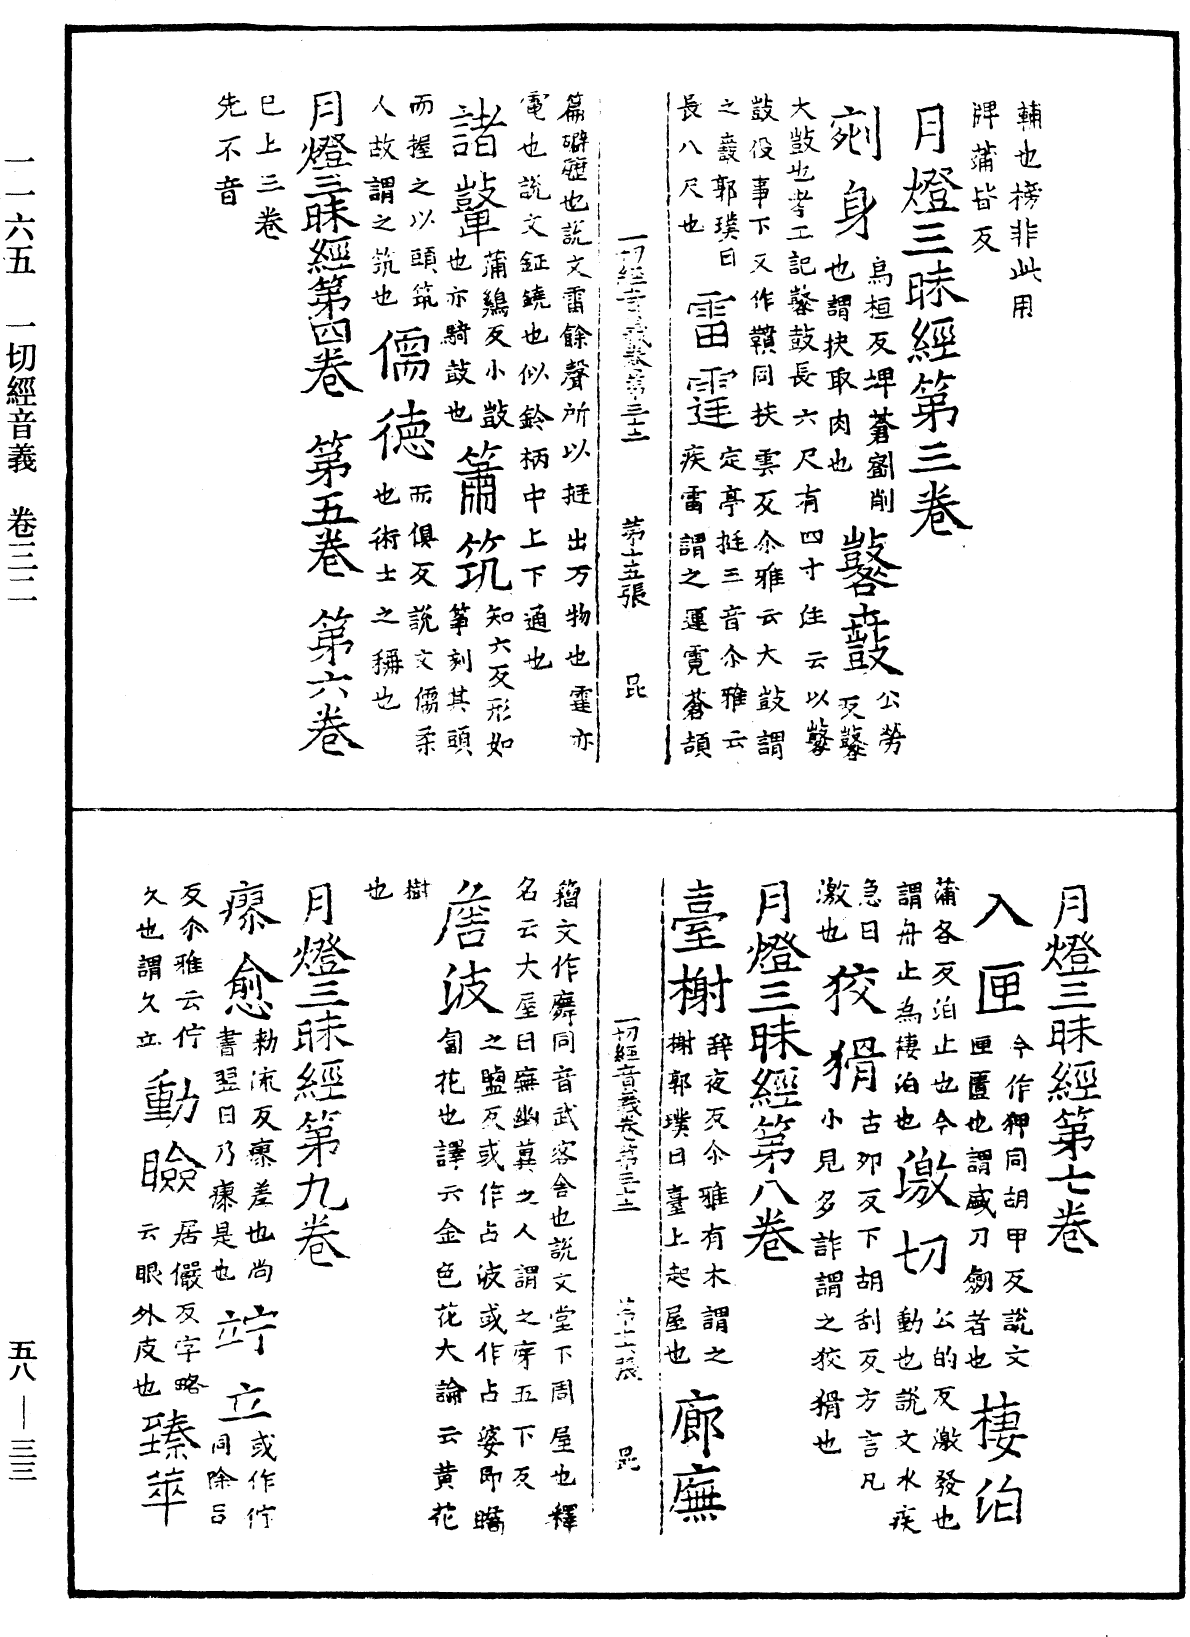 輔也榜非此用
牌蒲皆反
月燈三昧經第三卷
剜身
烏桓反埤蒼剜削
也謂抉取肉也
鼛鼓
公勞
反鼛
大鼓也考工記鼛鼓長六尺有四寸住云以鼛
鼓役事下又作鼖同扶雲反尒雅云大鼓謂
之鼖郭璞曰
長八尺也
雷霆
定亭挺三音尒雅云
疾雷謂之運霓蒼頡
一切經音義卷第三十二 第十五張 昆
篇礔礰也說文雷餘聲所以挺出万物也霆亦
電也說文鉦鐃也似鈴柄中上下通也
諸鼙
蒲鷄反小鼓
也亦騎鼓也
簫筑
知六反形如
箏刻其頭
而握之以頭筑
人故謂之筑也
儒德
而俱反說文儒柔
也術士之稱也
月燈三昧經第四卷 第五卷 第六卷
已上三卷
先不音
月燈三昧經第七卷
入匣
今作狎同胡甲反說文
匣匱也謂盛刀劒者也
棲泊
蒲各反泊止也今
謂舟止為棲泊也
激切
公的反激發也
動也說文水疾
急曰
激也
狡猾
古夘反下胡刮反方言凡
小見多詐謂之狡猾也
月燈三昧經第八卷
臺榭
辭夜反尒雅有木謂之
榭郭璞曰臺上起屋也
廊廡
籀文作廡同音武客舍也說文堂下周屋也釋
名云大屋曰廡幽冀之人謂之庌五下反
詹波
之鹽反或作占波或作占婆即瞻
匐花也譯云金色花大論云黃花
樹
也
月燈三昧經第九卷
瘳愈
勑流反瘳差也尚
書翌日乃瘳是也
竚立
或作佇
同除呂
反尒雅云佇
久也謂久立
動瞼
居儼反字略
云眼外皮也
臻萃
一一六五 一切經音義 卷三二
五八—三三